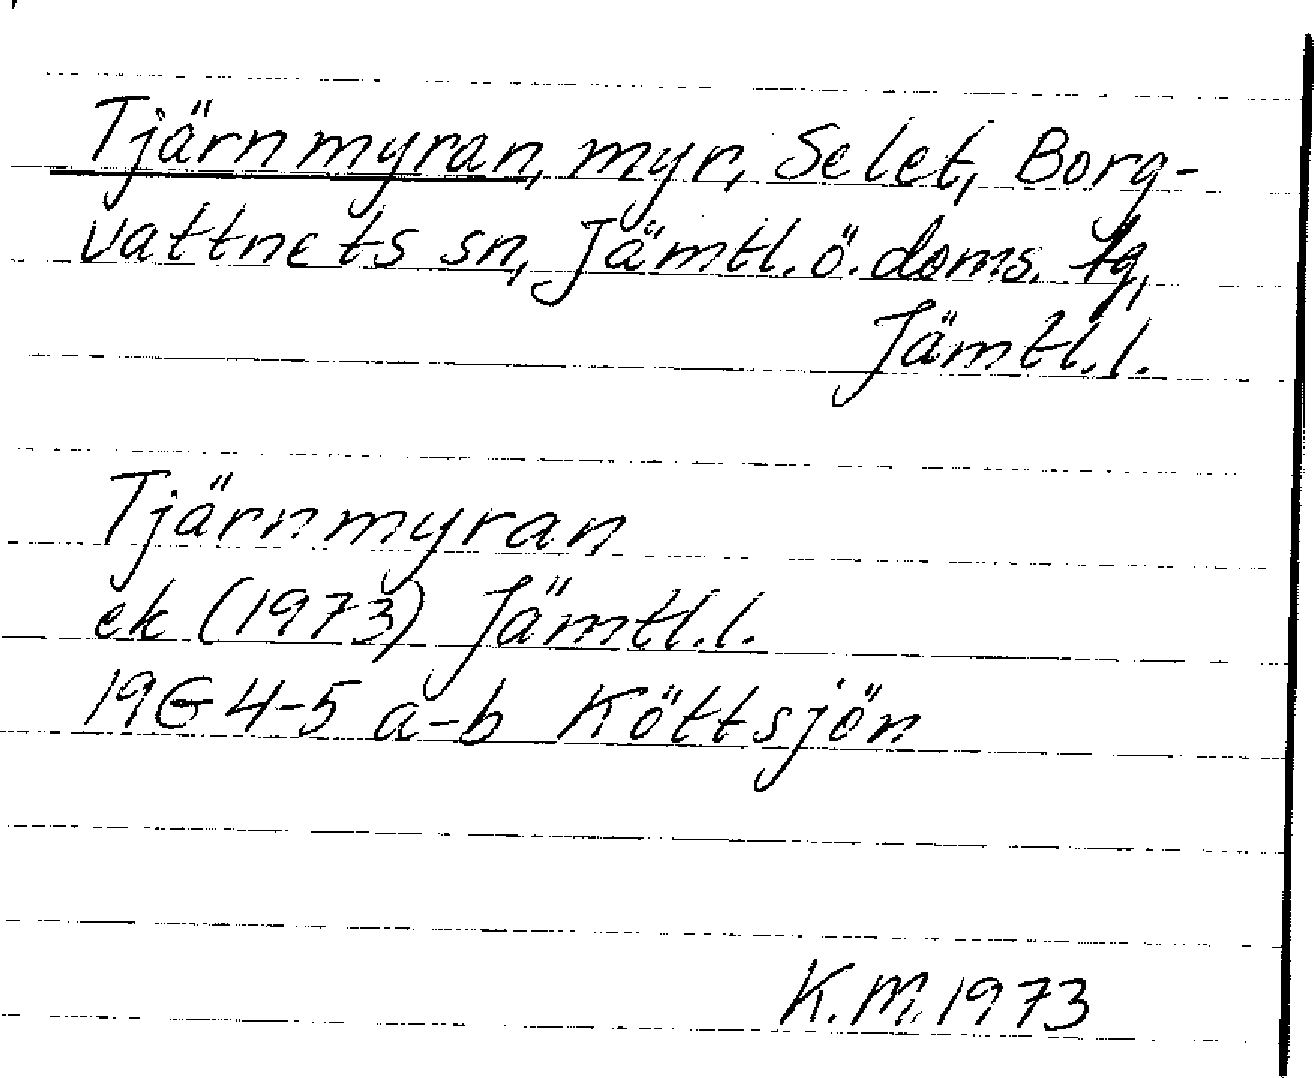 Tjärnmyran, myr, Selet, Borg-
vattnets sn, Jämtl. ö. doms. tg,
Jämtl. l.
Tjärnmyran
ek (1973) Jämtl. l.
19G4-5 a-b Köttsjön
K. M. 1973